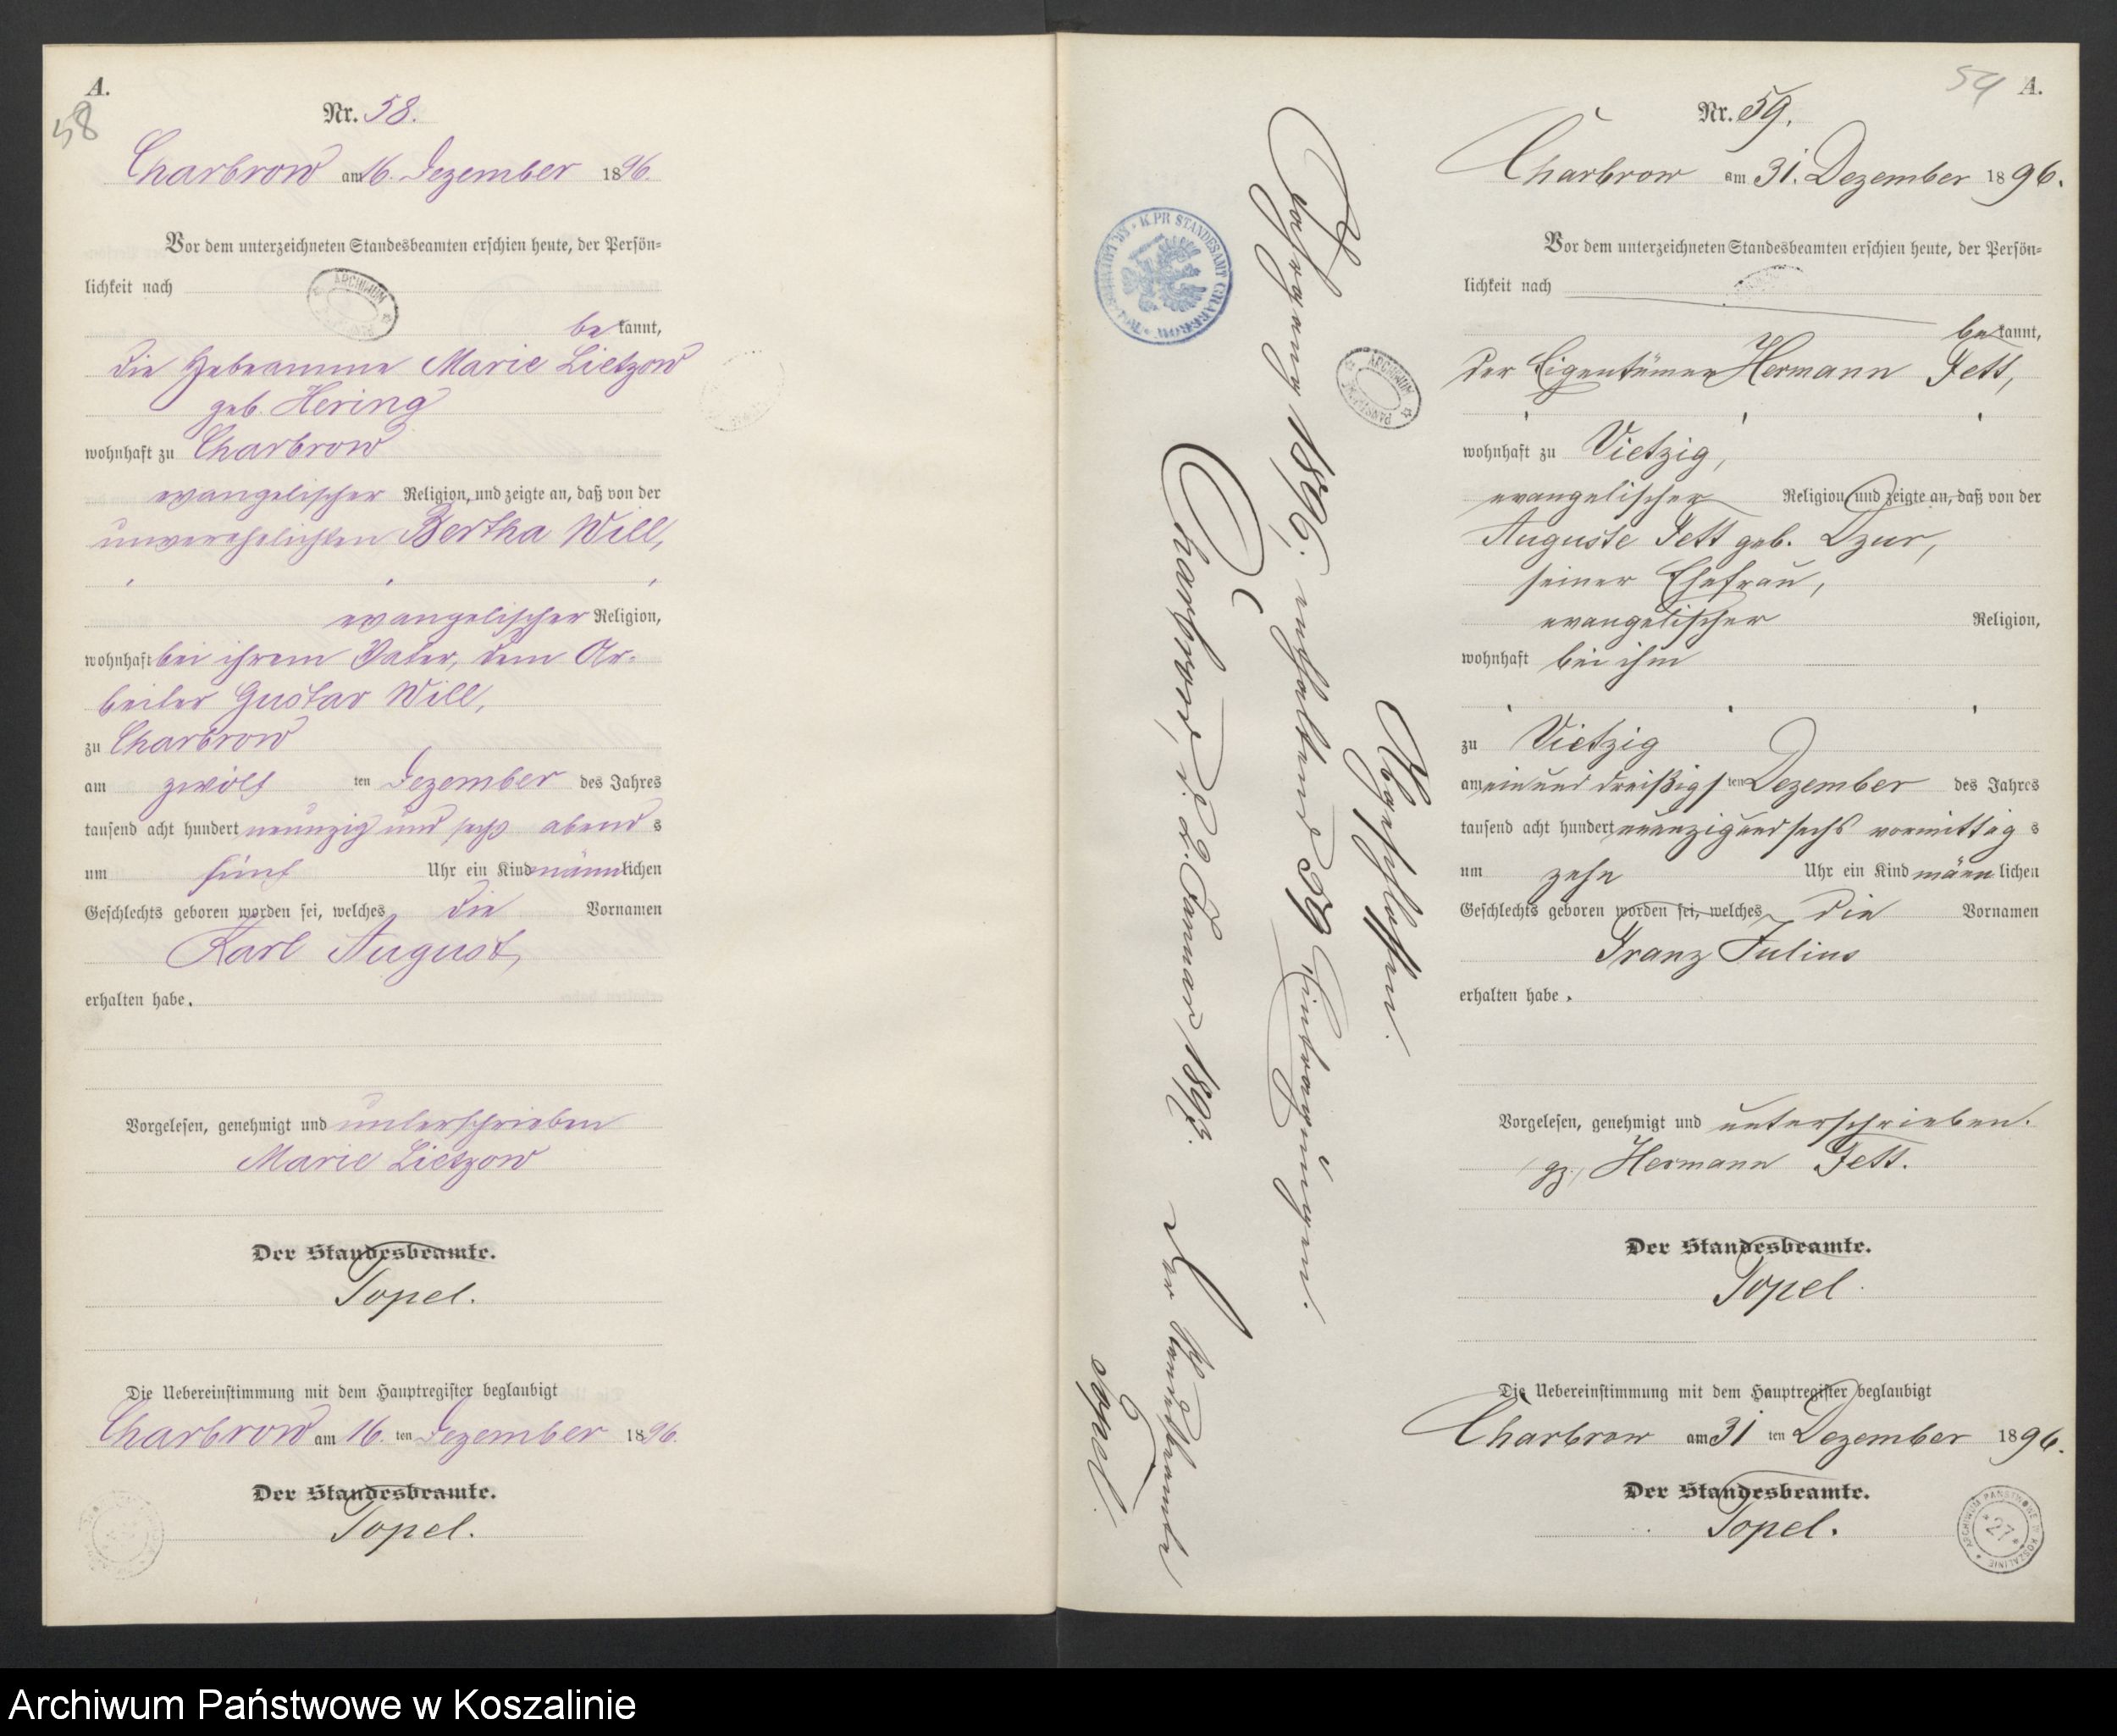 A.
58
Nr. 58.
Charbrow am 16. Dezember 1896.
Vor dem unterzeichneten Standesbeamten erschien heute, der Persön-
lichkeit nach
ARCHIWUM
bekannt,
die Hebeamme Marie Lietzow
geb. Hering
wohnhaft zu Charbrow
evangelischer Religion, und zeigte an, daß von der
unverehelichten Bertha Will,
evangelischer Religion,
wohnhaft bei ihrem Vater, dem Ar-
beiter Gustav Will,
zu Charbrow
am zwölf ten Dezember des Jahres
tausend acht hundert neunzig und sechs abends
um fünf Uhr ein Kind männlichen
Geschlechts geboren worden sei, welches die Vornamen
Karl August,
erhalten habe.
Vorgelesen, genehmigt und unterschrieben
Marie Lietzow
Der Standesbeamte.
Topel.
Die Uebereinstimmung mit dem Hauptregister beglaubigt
Charbrow am 16. ten Dezember 1896.
Der Standesbeamte.
Topel.
K. PR. STANDESAMT CHARBROW
Abgeschlossen.
Jahrgang 1896, enthaltend 59 Eintragungen.
Charbrow, d. 2. Januar 1897.
Der Standesbeamte
Topel.
ARCHIWUM PAŃSTW.
59 A.
Nr. 59.
Charbrow am 31. Dezember 1896.
Vor dem unterzeichneten Standesbeamten erschien heute, der Persön-
lichkeit nach
bekannt,
der Eigentümer Hermann Fett,
wohnhaft zu Vietzig,
evangelischer Religion, und zeigte an, daß von der
Auguste Fett geb. Dzur,
seiner Ehefrau,
evangelischer Religion,
wohnhaft bei ihm
zu Vietzig
am einund dreißigsten Dezember des Jahres
tausend acht hundert neunzig und sechs vormittags
um zehn Uhr ein Kind männlichen
Geschlechts geboren worden sei, welches die Vornamen
Franz Julius
erhalten habe.
Vorgelesen, genehmigt und unterschrieben.
gz. Hermann Fett.
Der Standesbeamte.
Topel.
Die Uebereinstimmung mit dem Hauptregister beglaubigt
Charbrow am 31 ten Dezember 1896.
Der Standesbeamte.
Topel.
ARCHIWUM PAŃSTWOWE W KOSZALINIE
27
Archiwum Państwowe w Koszalinie